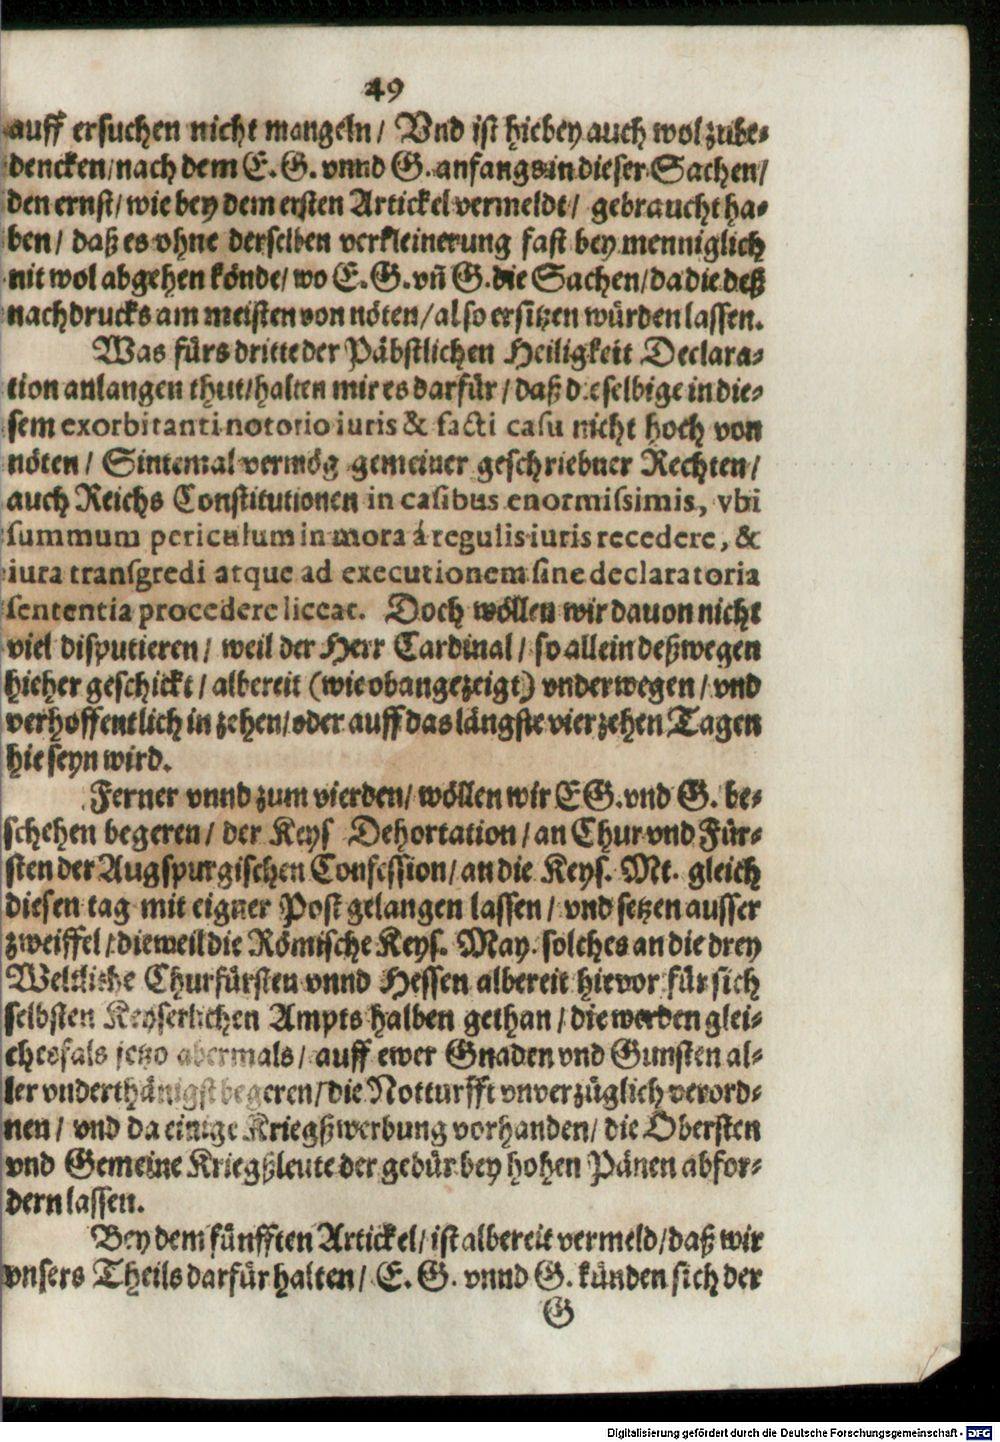 49
auff ersuchen nicht mangeln/ Vnd ist hiebey auch wol zube-
dencken/nach dem E.G. vnnd G. anfangs in dieser Sachen/
den ernst/ wie bey dem ersten Artickel vermeldt/ gebraucht ha-
ben/ daß es ohne derselben verkleinerung fast bey menniglich
nit wol abgehen könde/ wo E.G. vñ G. die Sachen/ da die deß
nachdrucks am meisten von nöten/ also ersitzen würden lassen.
Was fürs dritte der Päbstlichen Heiligkeit Declara-
tion anlangen thut/halten mir es darfür/ daß dieselbige in die-
sem exorbitanti notorio iuris & facti casu nicht hoch von
nöten/ Sintemal vermög gemeiner geschriebner Rechten/
auch Reichs Constitutionen in casibus enormissimis, vbi
summum periculum in mora á regulis iuris recedere, &
iura transgredi atque ad executionem sine declaratoria
sententia procedere liceat. Doch wöllen wir dauon nicht
viel disputieren/ weil der Herr Cardinal/ so allein deßwegen
hieher geschickt/ albereit (wie obangezeigt) vnderwegen/ vnd
verhoffentlich in zehen/ oder auff das längste vierzehen Tagen
hie seyn wird.
Ferner vnnd zum vierden/ wöllen wir EG. vnd G. be-
schehen begeren/ der Keys Dehortation/ an Chur vnd Für-
sten der Augspurgischen Confession/ an die Keys. Mt. gleich
diesen tag mit eigner Post gelangen lassen/ vnd setzen ausser
zweiffel/ dieweil die Römische Keys. May. solches an die drey
Weltliche Churfürsten vnnd Hessen albereit hievor für sich
selbsten Keyserlichen Ampts halben gethan/ die werden glei-
chesfals jetzo abermals/ auff ewer Gnaden vnd Gunsten al-
ler vnderthänigst begeren/ die Notturfft vnverzüglich verord-
nen/ vnd da einige Kriegßwerbung vorhanden/ die Obersten
vnd Gemeine Kriegßleute der gebür bey hohen Pänen abfor-
dern lassen.
Bey dem fünfften Artickel/ ist albereit vermeld/ daß wir
vnsers Theils darfür halten/ E. G. vnnd G. künden sich der
G
Digitalisierung gefördert durch die Deutsche Forschungsgemeinschaft - DFG